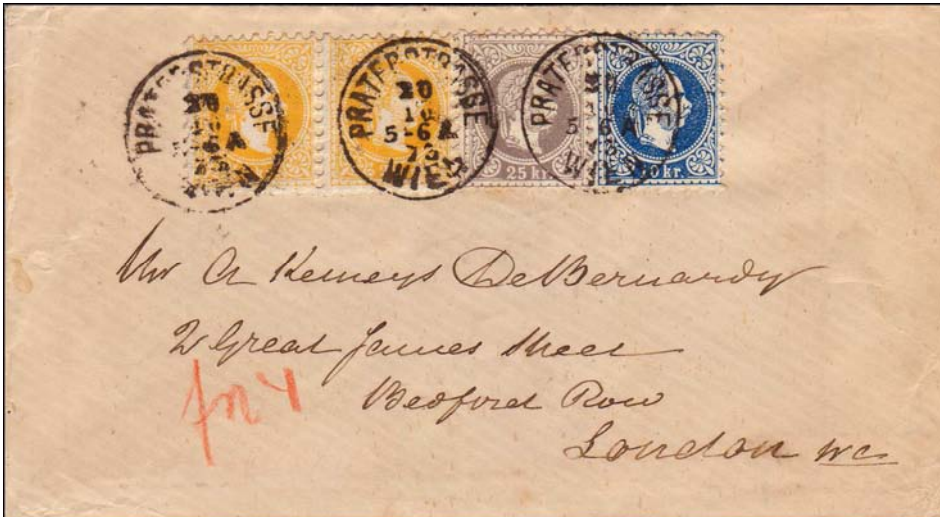 PRATERSTRASSE
WIEN
PRATERSTRASSE
20
10
5-6 A
73
WIEN
PRATERSTRASSE
5-6 A
WIEN
25 kr.
10 kr.
Mr A Kemeys De Bernardy
2 Great James Street
Bedford Row
London WC